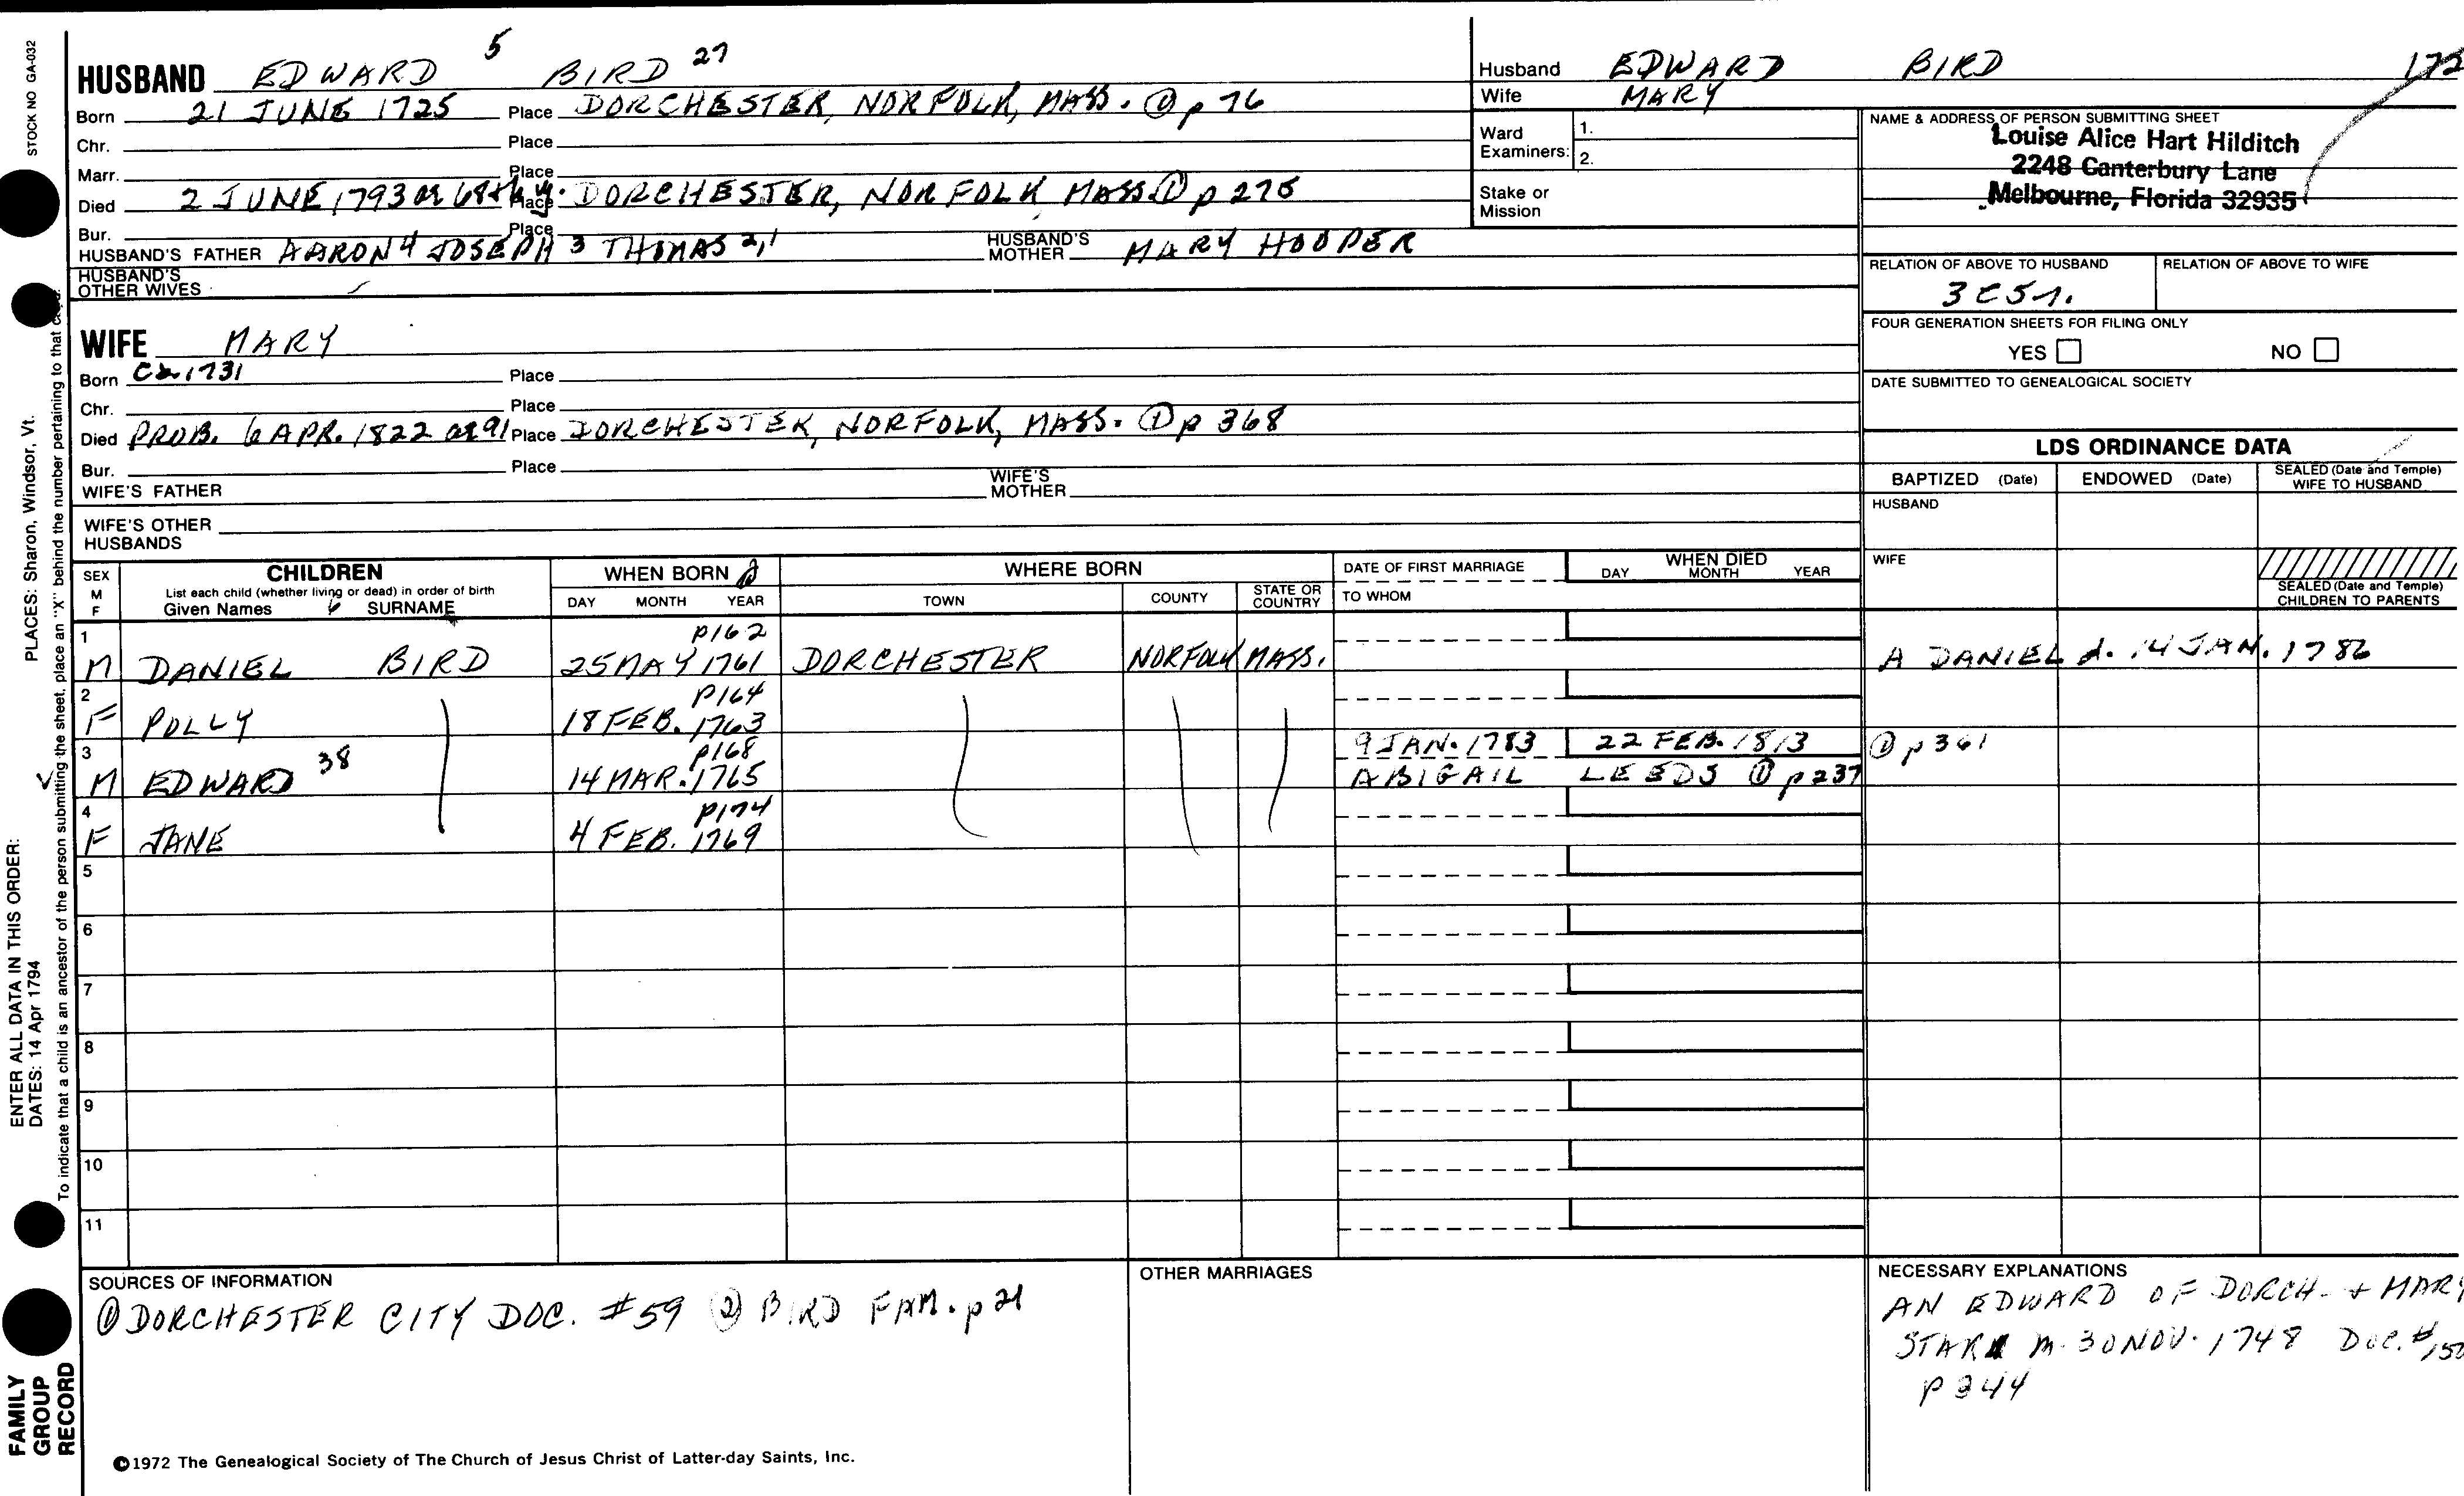 STOCK NO GA-032
HUSBAND EDWARD 5 BIRD 27
Born 21 JUNE 1725 Place DORCHESTER, NORFOLK, MASS. ① p 76
Chr. Place
Marr. Place
Died 2 JUNE, 1793 ae 68th y. Place DORCHESTER, NORFOLK MASS. ① p 275
Bur. Place
HUSBAND'S FATHER AARON 4 JOSEPH 3 THOMAS 2,1 HUSBAND'S MOTHER MARY HOOPER
HUSBAND'S OTHER WIVES
WIFE MARY
Born Ca. 1731 Place
Chr. Place
Died PROB. 6 APR. 1822 ae 91 Place DORCHESTER, NORFOLK, MASS. ① p 368
Bur. Place
WIFE'S FATHER WIFE'S MOTHER
WIFE'S OTHER HUSBANDS
Husband EDWARD BIRD
Wife MARY
Ward Examiners: 1.
2.
Stake or Mission
NAME & ADDRESS OF PERSON SUBMITTING SHEET
Louise Alice Hart Hilditch
2248 Canterbury Lane
Melbourne, Florida 32935
RELATION OF ABOVE TO HUSBAND RELATION OF ABOVE TO WIFE
3C5r.
FOUR GENERATION SHEETS FOR FILING ONLY
YES NO
DATE SUBMITTED TO GENEALOGICAL SOCIETY
LDS ORDINANCE DATA
BAPTIZED (Date) ENDOWED (Date) SEALED (Date and Temple) WIFE TO HUSBAND
HUSBAND
WIFE
SEALED (Date and Temple) CHILDREN TO PARENTS
SEX M F CHILDREN WHEN BORN ② WHERE BORN DATE OF FIRST MARRIAGE WHEN DIED
List each child (whether living or dead) in order of birth
Given Names SURNAME DAY MONTH YEAR TOWN COUNTY STATE OR COUNTRY TO WHOM DAY MONTH YEAR
1 p162
M DANIEL BIRD 25 MAY 1761 DORCHESTER NORFOLK MASS. A DANIEL d. 14 JAN. 1786
2 p164
F POLLY 18 FEB. 1763
3 p168 9 JAN. 1783 22 FEB. 1813 ① p 361
M EDWARD 38 14 MAR. 1765 ABIGAIL LEEDS ① p 237
4 p174
F JANE 4 FEB. 1769
5
6
7
8
9
10
11
SOURCES OF INFORMATION
① DORCHESTER CITY DOC. #59 ② BIRD FAM. p 21
OTHER MARRIAGES
NECESSARY EXPLANATIONS
AN EDWARD OF DORCH. + MARY
STARR m. 30 NOV. 1748 DOC. #150
p 344
©1972 The Genealogical Society of The Church of Jesus Christ of Latter-day Saints, Inc.
PLACES: Sharon, Windsor, Vt.
ENTER ALL DATA IN THIS ORDER:
DATES: 14 Apr 1794
To indicate that a child is an ancestor of the person submitting the sheet, place an "X" behind the number pertaining to that
FAMILY
GROUP
RECORD